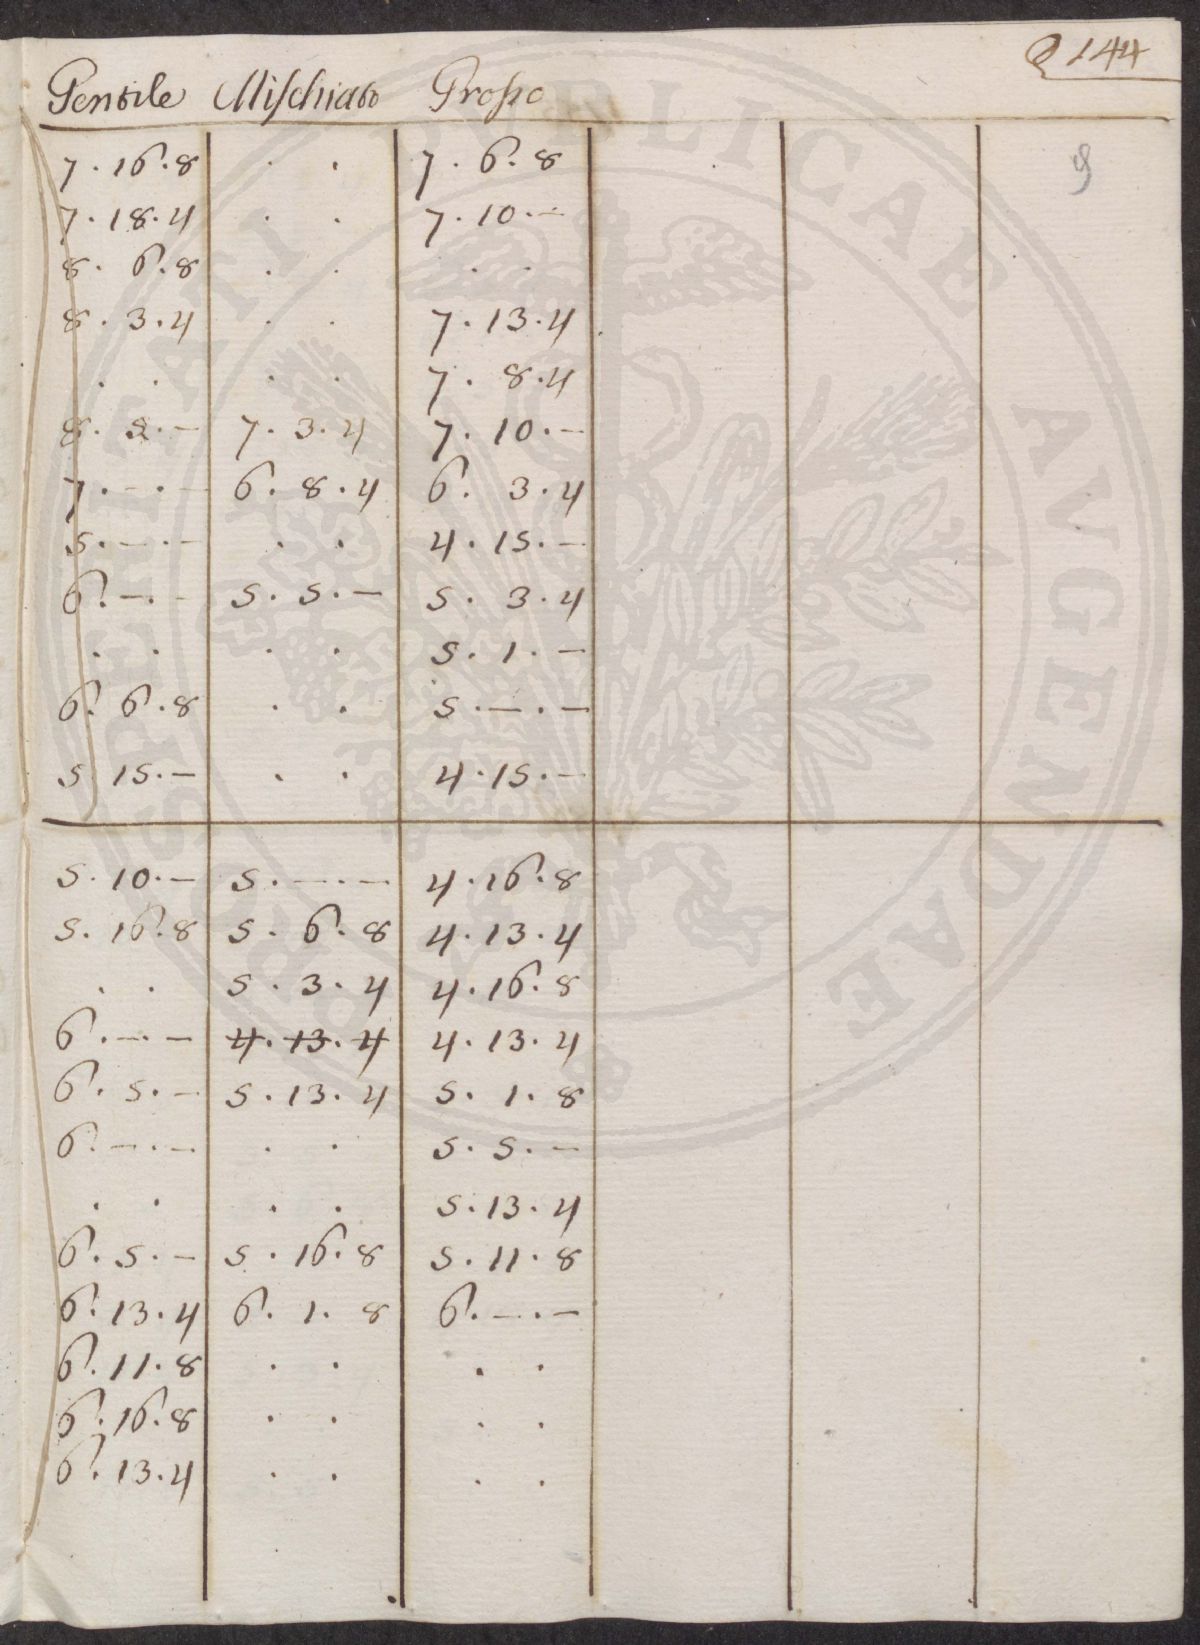 144
Gentile Mischiato Grosso
9
7 . 16 . 8 . . 7 . 6 . 8
7 . 18 . 4 . . 7 . 10 . —
8 . 6 . 8 . . . .
8 . 3 . 4 . . 7 . 13 . 4
. . . . 7 . 8 . 4
8 . 3 . — 7 . 3 . 4 7 . 10 . —
7 . — . — 6 . 8 . 4 6 . 3 . 4
5 . — . — . . 4 . 15 . —
6 . — . — 5 . 5 . — 5 . 3 . 4
. . . . 5 . 1 . —
6 . 6 . 8 . . 5 . — . —
5 . 15 . — . . 4 . 15 . —
5 . 10 . — 5 . — . — 4 . 16 . 8
5 . 16 . 8 5 . 6 . 8 4 . 13 . 4
. . 5 . 3 . 4 4 . 16 . 8
6 . — . — 4 . 13 . 4 4 . 13 . 4
6 . 5 . — 5 . 13 . 4 5 . 1 . 8
6 . — . — . . 5 . 5 . —
. . . . 5 . 13 . 4
6 . 5 . — 5 . 16 . 8 5 . 11 . 8
6 . 13 . 4 6 . 1 . 8 6 . — . —
6 . 11 . 8 . . . .
6 . 16 . 8 . . . .
6 . 13 . 4 . . . .
PROSPERITATI PUBLICAE AVGENDAE